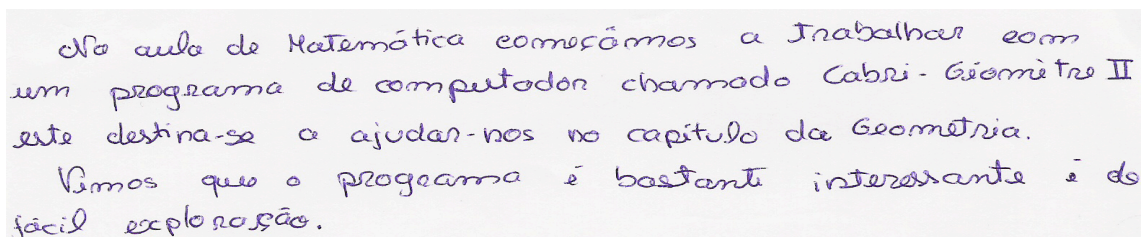 Na aula de Matemática começámos a Trabalhar com
um programa de computador chamado Cabri-Géomètre II
este destina-se a ajudar-nos no capítulo da Geometria.
Vimos que o programa é bastante interessante e de
fácil exploração.